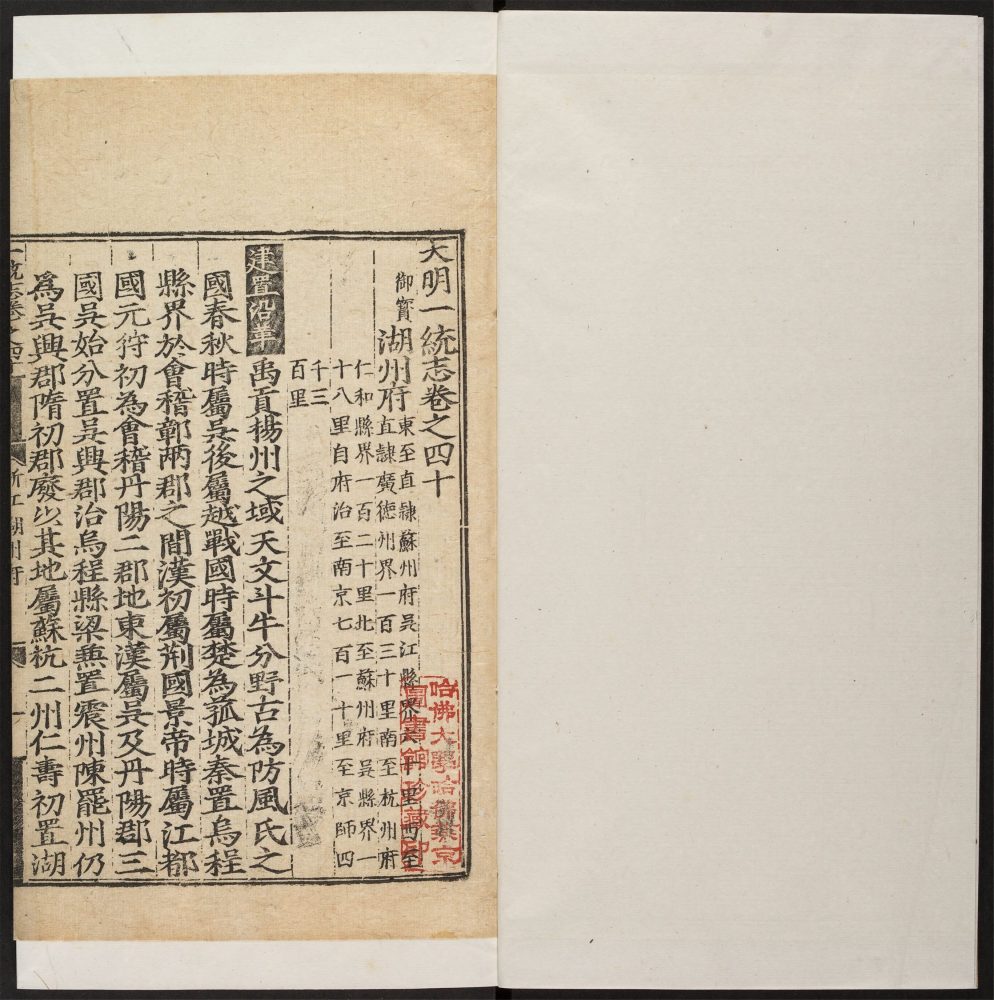 大明一統志卷之四十
御寶
湖州府
東至直隷蘇州府吳江縣界六十里西至
直隷廣德州界一百三十里南至杭州府
仁和縣界一百二十里北至蘇州府吳縣界一
十八里自府治至南京七百一十里至京師四
千三
百里
建置沿革
禹貢揚州之域天文斗牛分野古為防風氏之
國春秋時屬吳後屬越戰國時屬楚為菰城秦置烏程
縣界於會稽鄣兩郡之間漢初屬荆國景帝時屬江都
國元狩初為會稽丹陽二郡地東漢屬吳及丹陽郡三
國吳始分置吳興郡治烏程縣梁兼置震州陳罷州仍
為吳興郡隋初郡廢以其地屬蘇杭二州仁壽初置湖
一統志卷之四十
浙江 湖州府
一
哈佛大學哈佛燕京
圖書館珍藏印